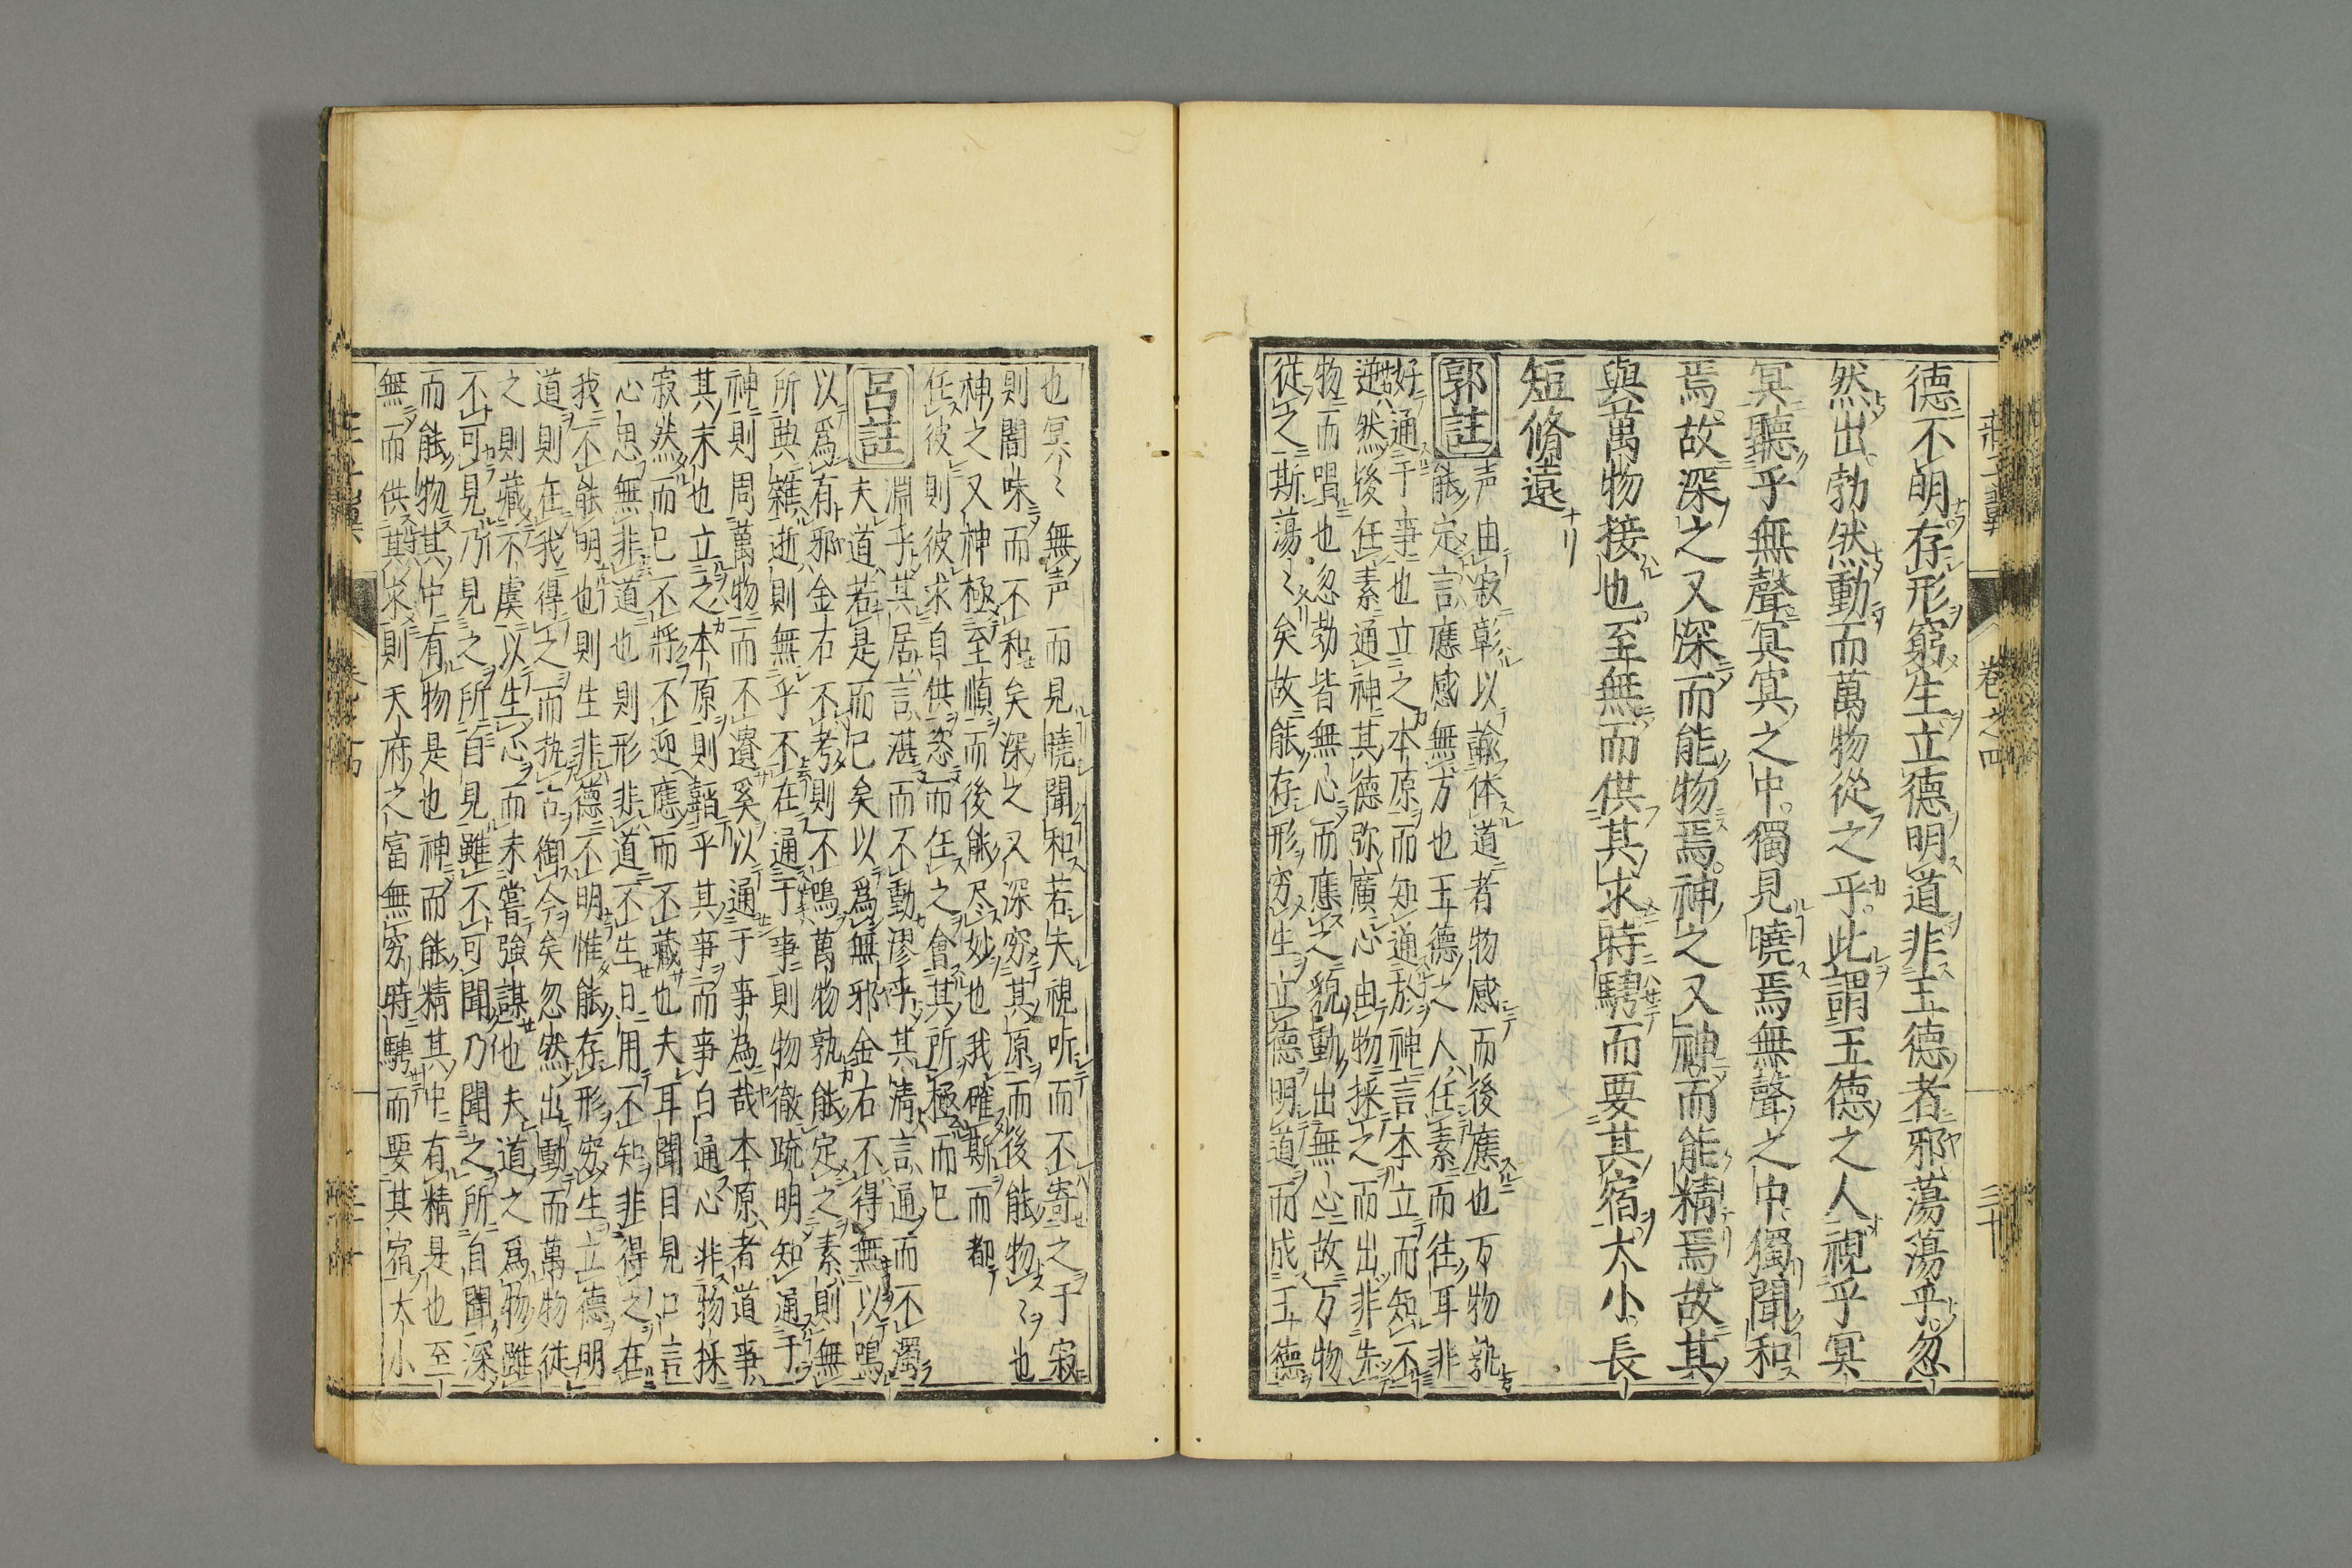 莊子翼
卷之四
三十
德不明存形窮生立德明道非王德者邪蕩蕩乎忽
然出勃然動而萬物從之乎此謂王德之人視乎冥
冥聽乎無聲冥冥之中獨見曉焉無聲之中獨聞和
焉故深之又深而能物焉神之又神而能精焉故其
與萬物接也至無而供其求時騁而要其宿大小長
短脩遠
郭註
声由寂彰以諭体道者物感而後應也万物孰
能定言應感無方也王德之人任素而往耳非
好通于事也立之本原而知通於神言本立而知不
逆然後任素通神其德弥廣心由物採之而出非先
物而唱也忽勃皆無心而應之貌動出無心故万物
從之斯蕩〻矣故能存形穷生立德明道而成王德
也冥〻無声而見曉聞和若失視听而不寄之于寂
則闇昧而不和矣深之又深穷其原而後能物〻也
神之又神極至順而後能尽妙也我確斯而都
任彼則彼求自供恣而任之會其所極而已
呂註
淵乎其居言湛而不動漻乎其清言通而不濁
夫道若是而已矣以爲無邪金石不得無以鳴
以爲有邪金石不考則不鳴萬物孰能定之素則無
所與雜逝則無乎不在通于事則物徹疏明知通于
神則周萬物而不遺奚以通于事為哉本原者道事
其末也立之本原則韜乎其事而事自通心非物採
寂然而已不將不迎應而不藏也夫耳聞目見口言
心思無非道也則形非道不生日用不知非得之在
我不能明也則生非德不明惟能存形穷生立德明
道則在我得之而執古御今矣忽然出動而萬物従
之則藏不虞以生心而未嘗強謀也夫道之爲物雖
不可見乃見之所自見雖不可聞乃聞之所自聞深
而能物其中有物是也神而能精其中有精是也至
無而供其求則天府之富無穷時騁而要其宿大小